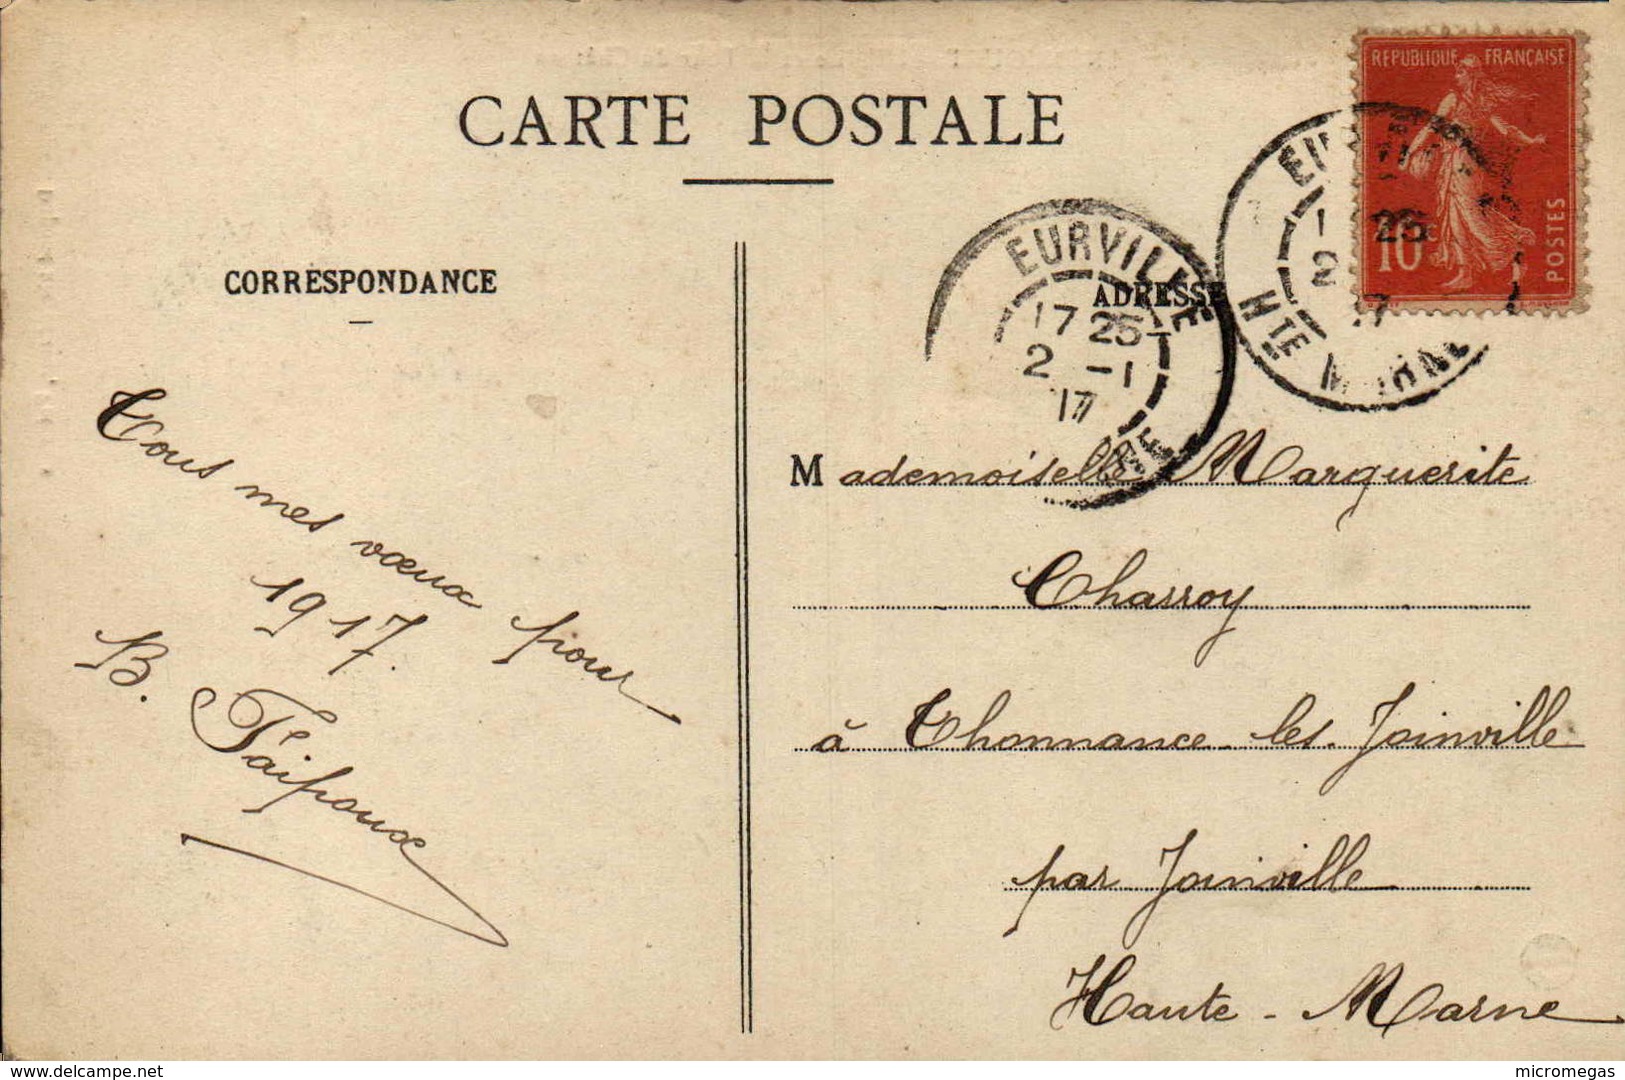 CARTE POSTALE
CORRESPONDANCE
Tous mes vœux pour
1917.
B.
REPUBLIQUE FRANÇAISE
10c
POSTES
25
HTE MARNE
EURVILLE
17 25
2 -1
17
ADRESSE
Mademoiselle Marguerite
Charroy
à Thonnance-les-Joinville
par Joinville
Haute-Marne
www.delcampe.net
micromegas